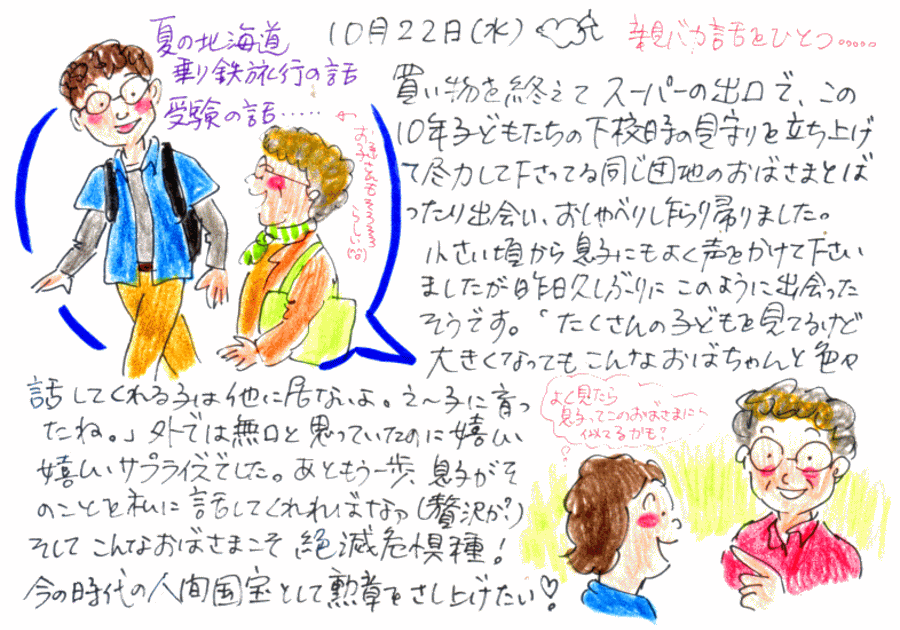 10月22日(水)
親バカ話をひとつ……
夏の北海道
乗り鉄旅行の話
受験の話……
お孫さんもそろそろ
らしい(^o^)
買い物を終えてスーパーの出口で、この
10年子どもたちの下校時の見守りを立ち上げ
て尽力して下さってる同じ団地のおばさまとば
ったり出会い、おしゃべりし乍らり帰りました。
小さい頃から息子にもよく声をかけて下さい
ましたが昨日久しぶりにこのように出会った
そうです。「たくさんの子どもを見てるけど
大きくなってもこんなおばちゃんと色々
話してくれる子は他に居ないよ。え〜子に育っ
たね。」外では無口と思っていたのに嬉しい
嬉しいサプライズでした。あともう一歩、息子がそ
のことを私に話してくれればなァ(贅沢か?)
そしてこんなおばさまこそ絶滅危惧種!
今の時代の人間国宝として勲章をさし上げたい♡!
よく見たら
息子ってこのおばさまに
似てるかも?